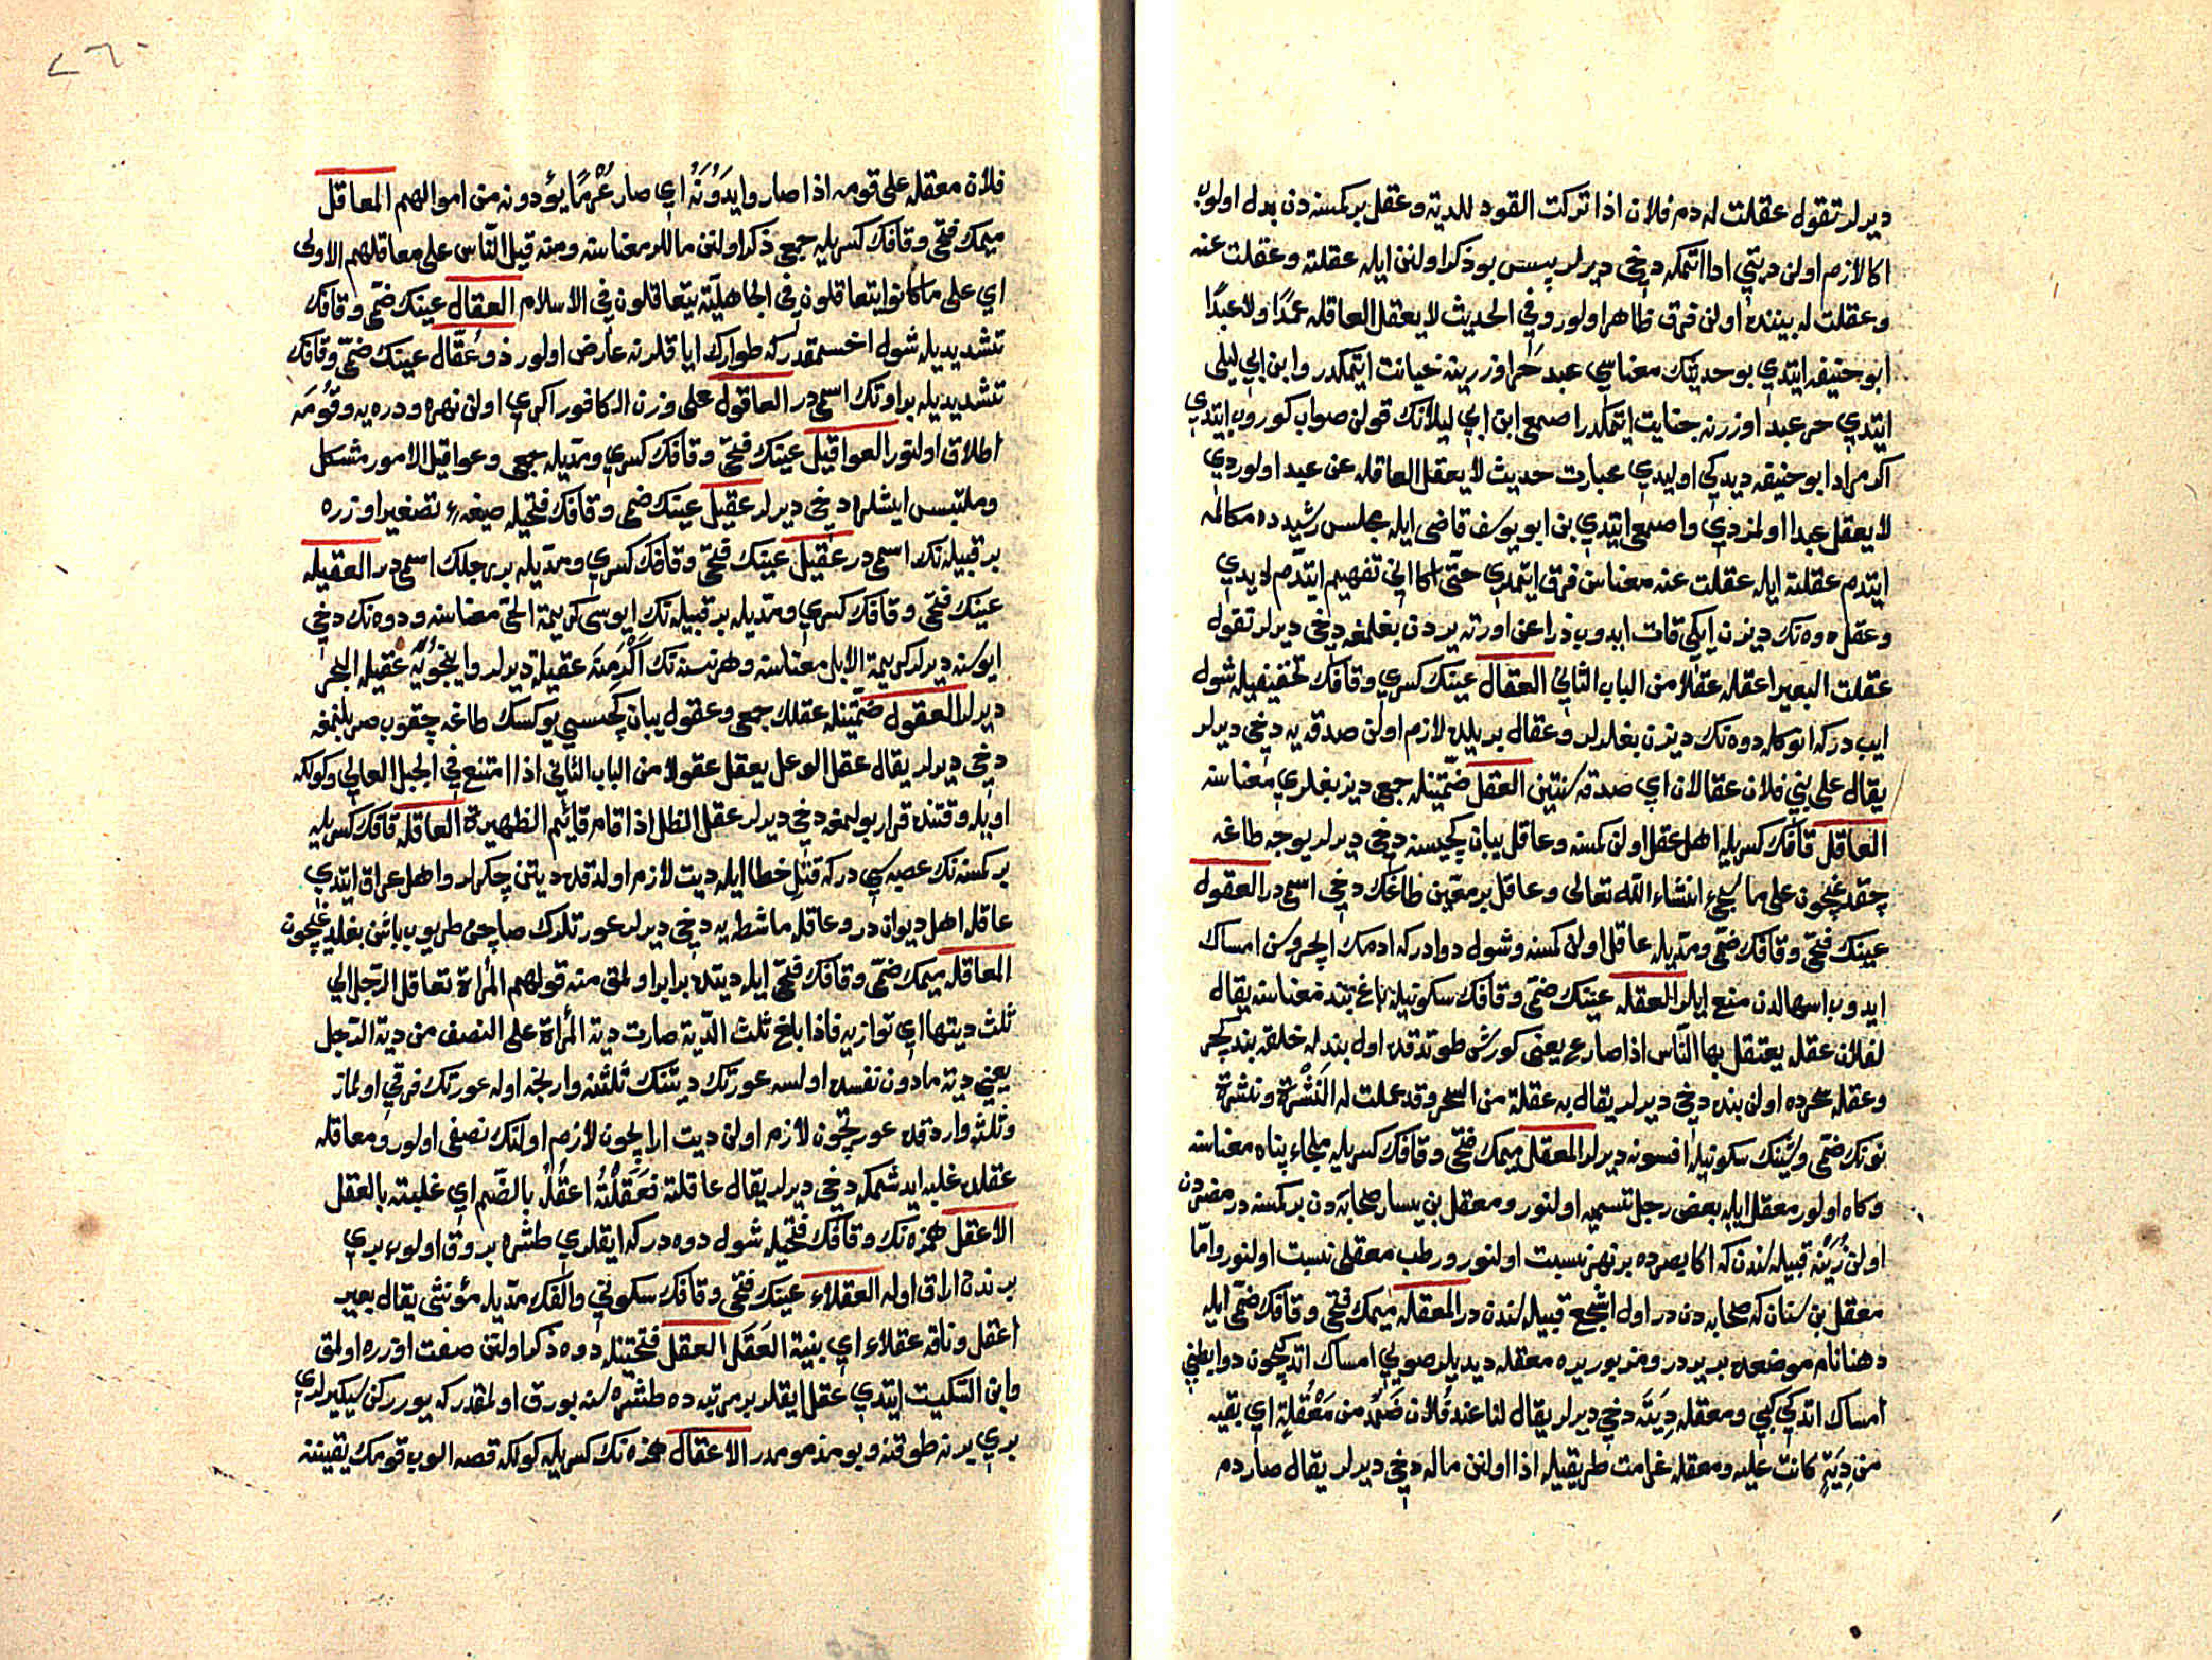 ديرلر تقول عقلت له دم فلان اذا تركت القود للدية وعقل بر كمسنه دن بدل اولوب
اكا لازم اولن ديتي ادا اتمكه دخي ديرلر پس بو ذكر اولنن ايله عقلته وعقلت عنه
وعقلت له بيننده اولن فرق ظاهر اولور وفي الحديث لا يعقل العاقله عمدًا ولا عبدًا
ابو حنيفه ايتدي بو حديثك معناسي عبد حر اوزرينه خيانت ايتمكدر وابن ابي ليلى
ايتدي حر عبد اوزرنه جنايت ايتمكدر اصمعي ابن ابي ليلانك قولن صواب كوروب ايتدي
اكر مراد ابو حنيفه ديدكي اوليدي عبارت حديث لا يعقل العاقله عن عبد اولوردي
لا يعقل عبدا اولمزدي واصمعي ايتدي بن ابو يوسف قاضى ايله مجلس رشيده مكالمه
ايتدم عقلته ايله عقلت عنه معناسن فرق ايتمدي حتّى اكا انى تفهيم ايتدم ديدي
وعقل دوه نك ديزن ايكي قات ايدوب ذراعن اورته يردن بغلمغه دخي ديرلر تقول
عقلت البعير اعقله عقلًا من الباب الثاني العقال عينك كسري وقافك تخفيفيله شول
ايپ در كه انوكله دوه نك ديزن بغلرلر وعقال بر ييلده لازم اولن صدقه يه دخي ديرلر
يقال على بني فلان عقالان اي صدقه سنتين العقل ضمّتينله جمعى ديز بغلري معناسنه
العاقل قافك كسريله اهل عقل اولن كمسنه وعاقل يبان كچيسنه دخي ديرلر يوجه طاغه
چقدغيچون على ما يجيء انشاء الله تعالى وعاقل بر معيّن طاغك دخي اسمى در العقول
عينك فتحى وقافك ضمّى ومدّيله عاقل اولن كمسنه وشول دوادر كه ادمك ايچروسن امساك
ايدوب اسهالدن منع ايلر العقله عينك ضمّى وقافك سكونيله باغ بند معناسنه يقال
لفلان عقله يعتقل بها الناس اذا صارع يعنى كورش طوتدقده اول بند له خلقه بند كچر
وعقله سحرده اولن بنده دخي ديرلر يقال به عقلة من السحر وقد عملت له النُشْرة ونشرة
نونك ضمّى وشينك سكونيله افسونه ديرلر المعقل ميمك فتحى وقافك كسريله ملجاء پناه معناسنه
وكاه اولور معقل ايله بعض رجل تسميه اولنور ومعقل بن يسار صحابه دن بر كمسنه در مضردن
اولن مزينه قبيله سندن كه اكا بصره ده بر نهر نسبت اولنور ورطب معقلى نسبت اولنور وامّا
معقل بن سنان كه صحابه دن در اول اشجع قبيله سندن در المعقله ميمك فتحى وقافك ضمّى ايله
دهنا نام موضعده بر ير در ومزبور يره معقله ديديلر صويي امساك اتدكيچون دوا بطني
امساك اتدكي كبي ومعقله دِيَتَه دخي ديرلر يقال لنا عند فُلان ضَمَد من مَعْقُلة اي بقيه
من دِيَةٍ كانت عليه ومعقله غرامت طريقيله اذا اولنن ماله دخي ديرلر يقال صار دم
٢٦٠
فلان معقله على قومه اذا صاروا يَدُوْنَهُ اي صار غُرْمًا يؤدونه من اموالهم المعاقل
ميمك فتحى وقافك كسريله جمعى ذكر اولنن ماللر معناسنه ومنه قيل الناس على معاقلهم الاولى
اي على ما كانوا يتعاقلون في الجاهليّة يتعاقلون في الاسلام العقال عينك ضمّى وقافك
تشديديله شول اخسمقدر كه طوارك اياقلرنه عارض اولور ذو عُقّال عينك ضمّى وقافك
تشديديله بر اوتك اسمى در العاقول على وزن الكافور اكري اولن نهره ودره يه وقُومَه
اطلاق اولنور العواقيل عينك فتحى وقافك كسري ومدّيله جمعى وعواقيل الامور مشكل
وملتبس ايشلره دخي ديرلر عقيل عينك ضمى وقافك فتحيله صيغهء تصغير اوزره
بر قبيله نك اسمى در عقيل عينك فتحى وقافك كسري ومدّيله بر رجلك اسمى در العقيله
عينك فتحى وقافك كسري ومدّيله بر قبيله نك ايوسى كريمة الحيّ معناسنه ودوه نك دخي
ايوسنه ديرلر كريمة الابل معناسنه وهر نسنه نك اَكْرَمنه عقيلة ديرلر واينجويه عقيله البحر
ديرلر العقول ضمّتينله عقلك جمعى وعقول يبان كچيسي يوكسك طاغه چقوب صرپلنمغه
دخي ديرلر يقال عقل الوعل يعقل عقولا من الباب الثاني اذا امتنع في الجبل العالي وكولكه
اويله وقتنده قرار بولمغه دخي ديرلر عقل الظل اذا قام قائم الظهيرة العاقله قافك كسريله
بر كمسنه نك عصبه سي در كه قتل خطا ايله ديت لازم اولدقده ديتن چكرلر واهل عراق ايتدي
عاقله اهل ديوان در وعاقله ماشطه يه دخي ديرلر عورتلرك صاچن طريوب باشن بغلديغيچون
المعاقله ميمك ضمّى وقافك فتحى ايله ديتده برابر اولمق منه قولهم المرأة تعاقل الرجل الي
ثلث ديتها اي توازيه فاذا بلغ ثلث الدّية صارت دية المرأة على النصف من دية الرّجل
يعني ديه مادون نفسده اولسه عورتك ديتنك ثلثنه وارنجه اوله عورتك فرقي اولماز
وثلثه واردقده عورتچون لازم اولن ديت ارايچون لازم اولنك نصفى اولور ومعاقله
عقلده غلبه ايدشمكه دخي ديرلر يقال عاقلته فعَقَلْتُه اعقُلُه بالضّم اي غلبته بالعقل
الاعقل همزه نك وقافك فتحيله شول دوه در كه ايقلري طشره بروق اولوب بري
برندن اراق اوله العقلاء عينك فتحى وقافك سكونى والفك مدّيله مؤنثى يقال بعير
اعقل وناقه عقلاء اي بنية العَقَل العقل فتحتينله دوه ذكر اولنن صفت اوزره اولمق
وابن السّكيت ايتدي عقل ايقلر بر مرتبه ده طشره سنه بورق اولمقدر كه يورركن سيكيرلري
بري برنه طوقنه وبو مذمومدر الاعقال همزه نك كسريله كولكه قصه الوب قومك يقيننه